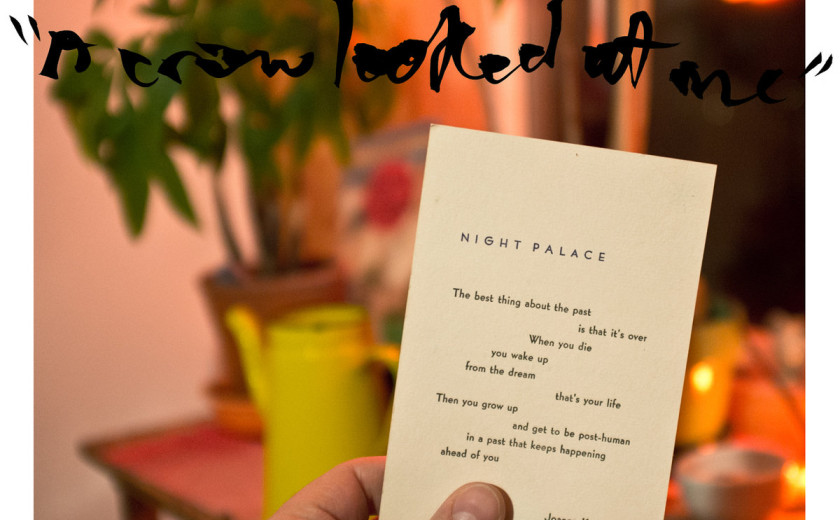 "A crow looked at me"
NIGHT PALACE
The best thing about the past
is that it's over
When you die
you wake up
from the dream
that's your life
Then you grow up
and get to be post-human
in a past that keeps happening
ahead of you